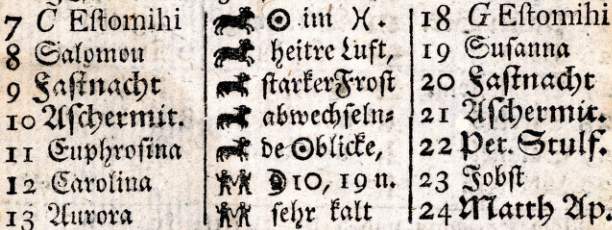 7 C Eſtomihi ☉ im ♓. 18 G Eſtomihi
8 Salomon heitre Luft, 19 Suſanna
9 Faſtnacht ſtarker Froſt 20 Faſtnacht
10 Aſchermit. abwechſeln⸗ 21 Aſchermit.
11 Euphroſina de ☉blicke, 22 Pet. Stulf.
12 Carolina 10, 19 u. 23 Jobſt
13 Aurora ſehr kalt 24 Matth Ap.